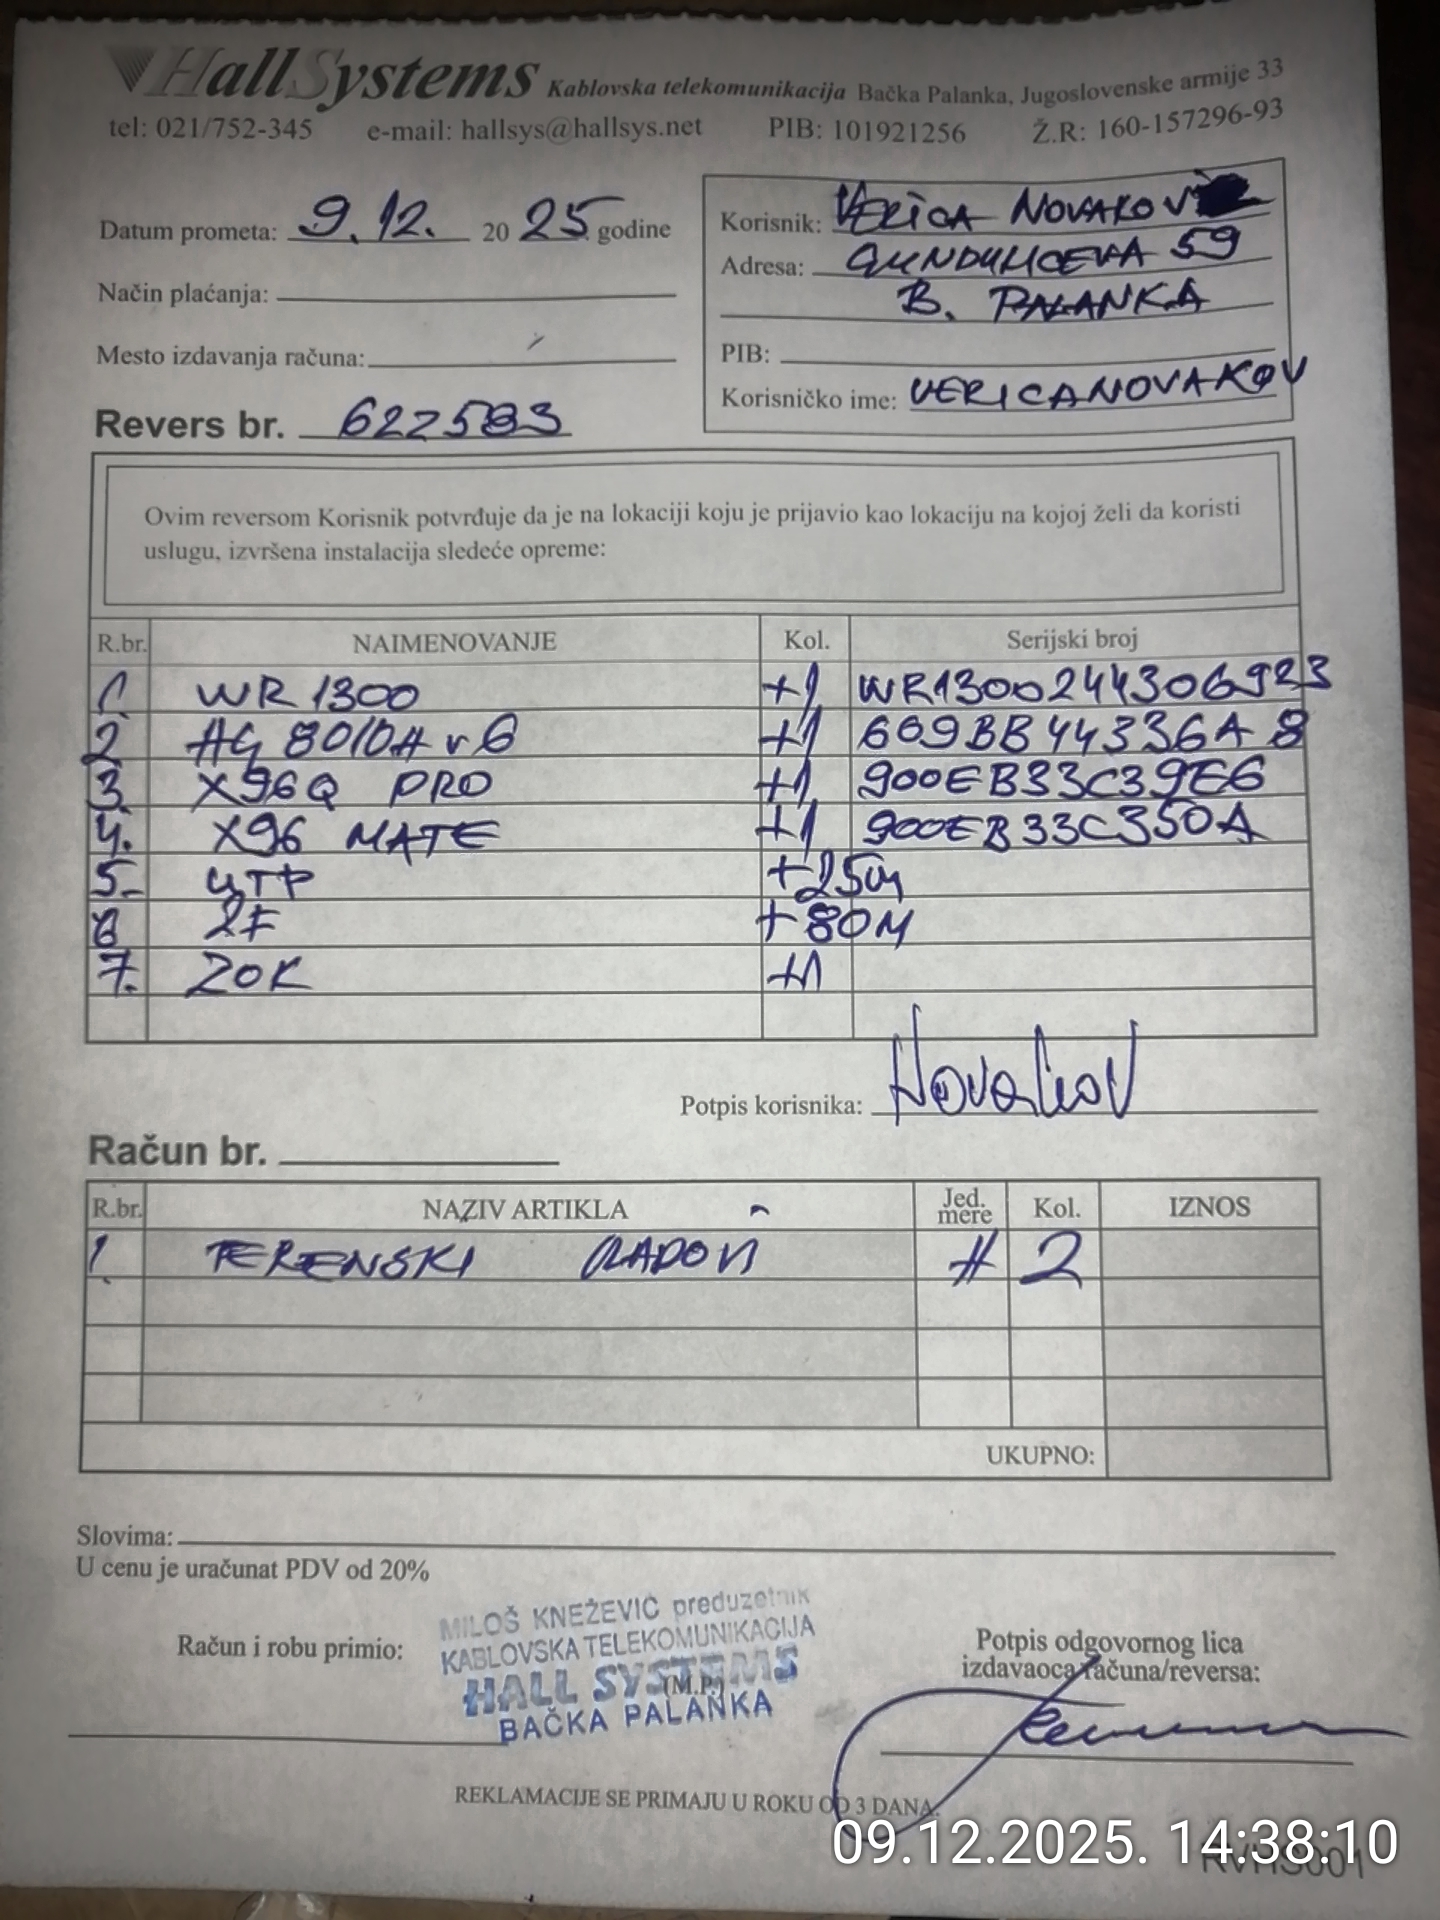 HallSystems Kablovska telekomunikacija Bačka Palanka, Jugoslovenske armije 33
tel: 021/752-345 e-mail: hallsys@hallsys.net PIB: 101921256 Ž.R: 160-157296-93
Datum prometa: 9.12. 2025 godine
Način plaćanja:
Mesto izdavanja računa:
Revers br. 622583
Korisnik: VERICA NOVAKOV
Adresa: GUNDULICEVA 59
B. PALANKA
PIB:
Korisničko ime: VERICANOVAKOV
Ovim reversom Korisnik potvrđuje da je na lokaciji koju je prijavio kao lokaciju na kojoj želi da koristi
uslugu, izvršena instalacija sledeće opreme:
R.br. NAIMENOVANJE Kol. Serijski broj
1. WR 1300 +1 WR1300244306923
2 HG 8010H v6 +1 669BB44336A8
3. X96Q PRO +1 900EB33C39E6
4. X96 MATE +1 900EB33C350A
5. UTP +25m
6 2F +80M
7. ZOK +1
Potpis korisnika: Novakov
Račun br.
R.br. NAZIV ARTIKLA Jed. mere Kol. IZNOS
1. TERENSKI RADOVI H 2
UKUPNO:
Slovima:
U cenu je uračunat PDV od 20%
MILOŠ KNEŽEVIĆ preduzetnik
KABLOVSKA TELEKOMUNIKACIJA
HALL SYSTEMS
BAČKA PALANKA
Račun i robu primio:
(M.P.)
Potpis odgovornog lica
izdavaoca računa/reversa:
REKLAMACIJE SE PRIMAJU U ROKU OD 3 DANA.
09.12.2025. 14:38:10